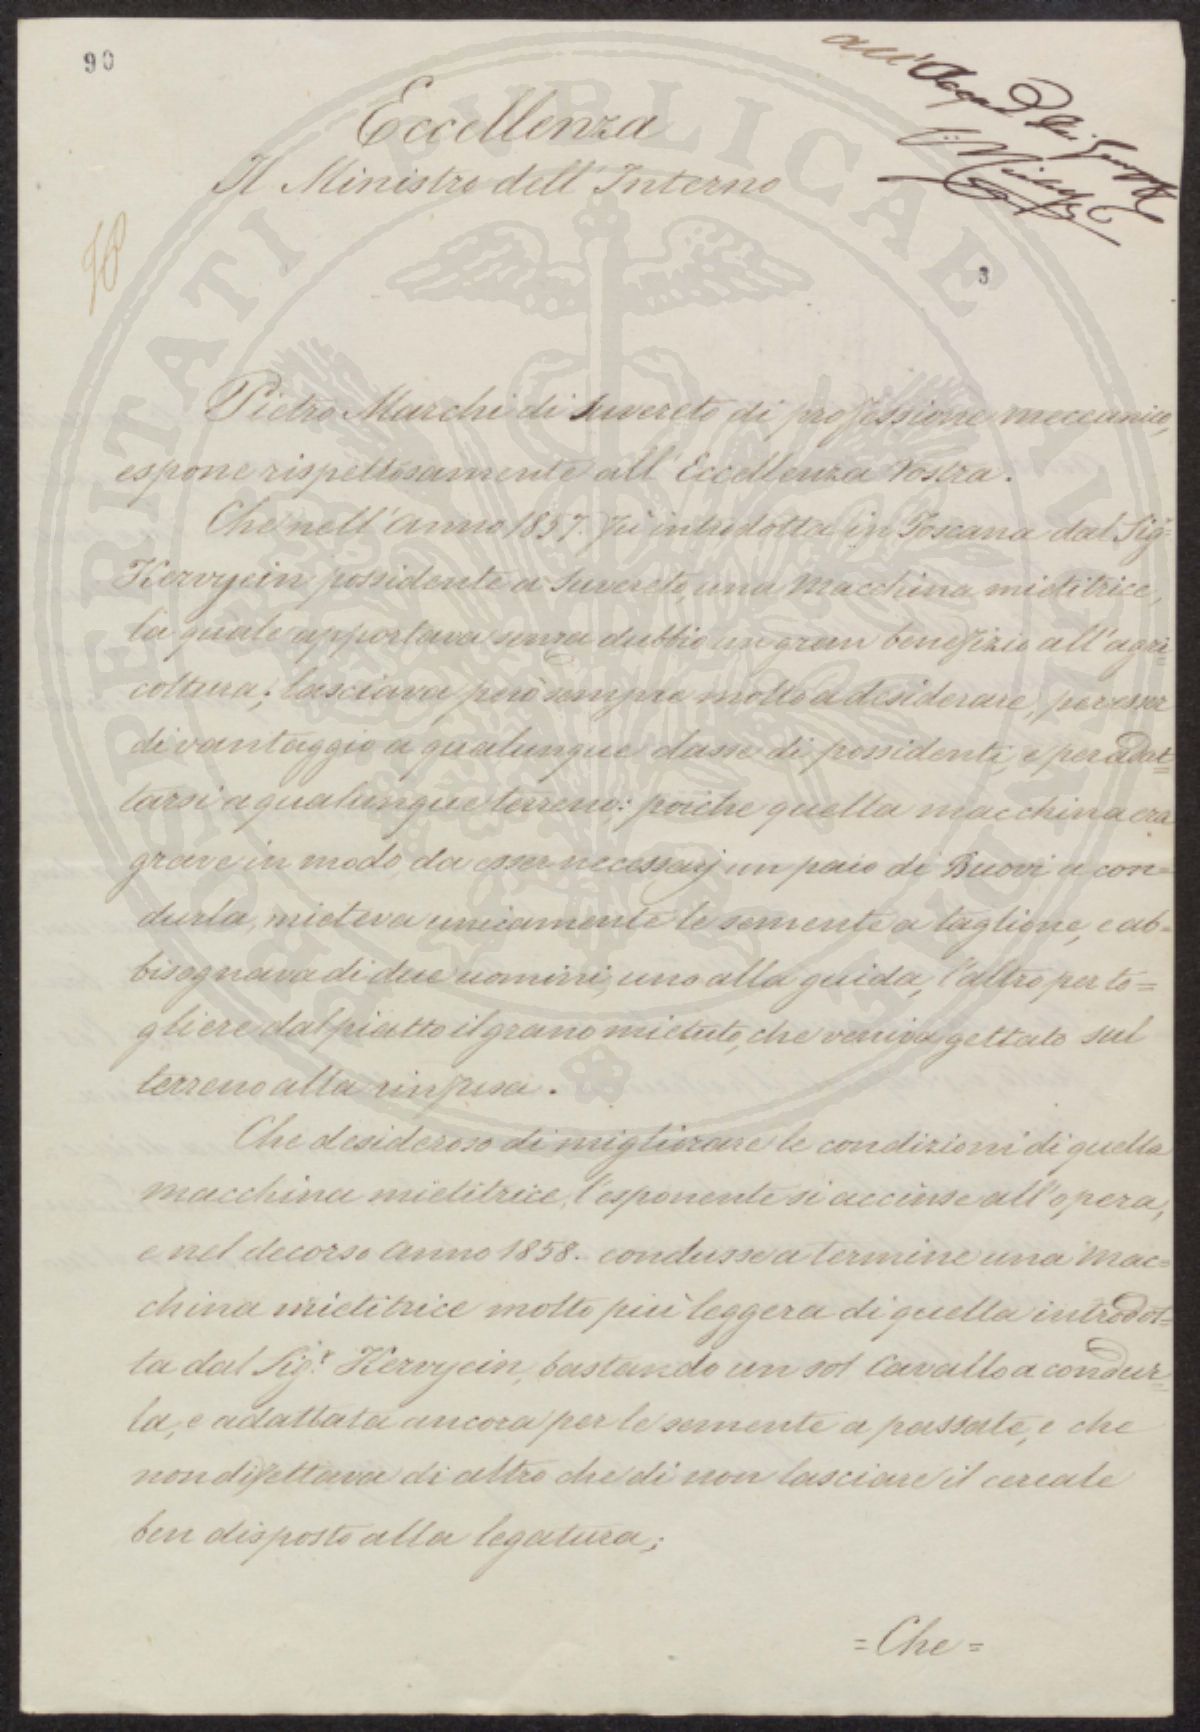 90
all'Accad dei Georgof
Eccellenza
Il Ministro dell'Interno
3
Pietro Marchi di Suvereto di professione meccanico,
espone rispettosamente all'Eccellenza Vostra.
Che nell'anno 1857. fù introdotta in Toscana dal Sigr.
Kervyein possidente a Suvereto, una Macchina mietitrice,
la quale apportava senza dubbio un gran benefizio all'agri=
coltura; lasciava però sempre molto a desiderare, per esser
di vantaggio a qualunque classe di possidenti, e per adat=
tarsi a qualunque terreno: poichè quella macchina era
grave in modo da esser necessarj un paio di Buovi a con=
durla, mieteva unicamente le semente a taglione, e ab=
bisognava di due uomini, uno alla guida, l'altro per to=
gliere dal piatto il grano mietuto, che veniva gettato sul
terreno alla rinfusa.
Che desideroso di migliorare le condizioni di quella
macchina mietitrice, l'esponente si accinse all'opera,
e nel decorso anno 1858. condusse a termine una Mac=
china mietitrice molto più leggera di quella introdot=
ta dal Sigr. Kervyein, bastando un sol Cavallo a condur=
la, e adattata ancora per le semente a passate, e che
non difettava di altro che di non lasciare il cereale
ben disposto alla legatura;
=Che=
PROSPERITATI PUBLICAE AUGENDAE